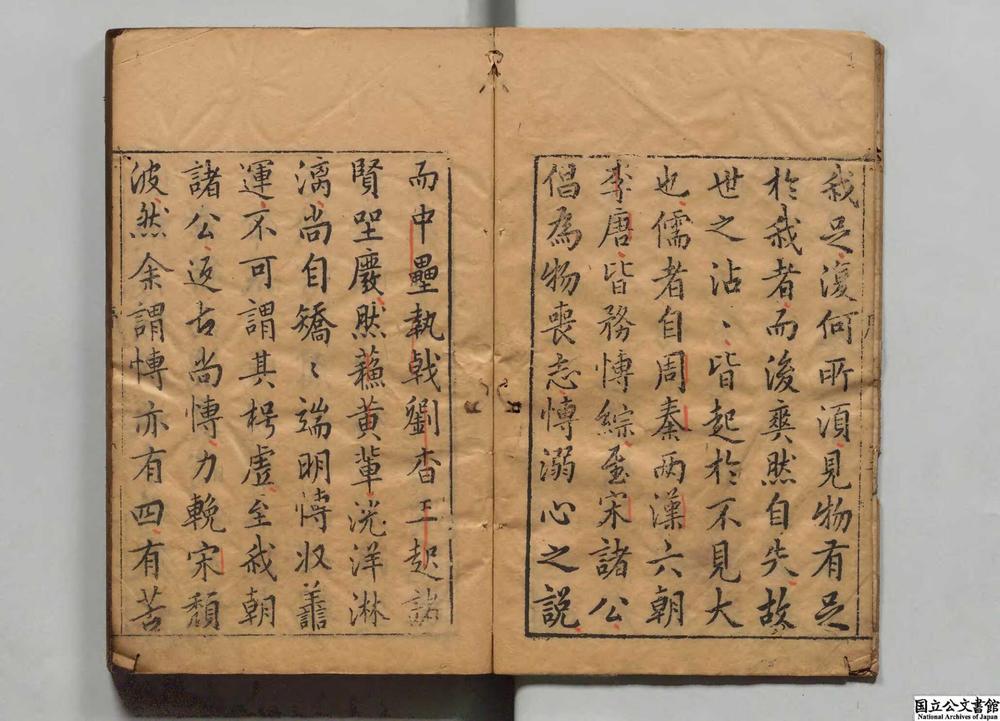 我足復何所須見物有足
於我者而後爽然自失故
世之沾〻皆起於不見大
也儒者自周秦兩漢六朝
李唐皆務博綜至宋諸公
倡為物喪志博溺心之說
而中壘執戟劉杳王起諸
賢聖廢然蘇黃輩洸洋淋
漓尚自矯〻端明恃收譱
運不可謂其枵虛至我朝
諸公返古尚博力輓宋頹
波然余謂博亦有四有苦
序
国立公文書館
National Archives of Japan